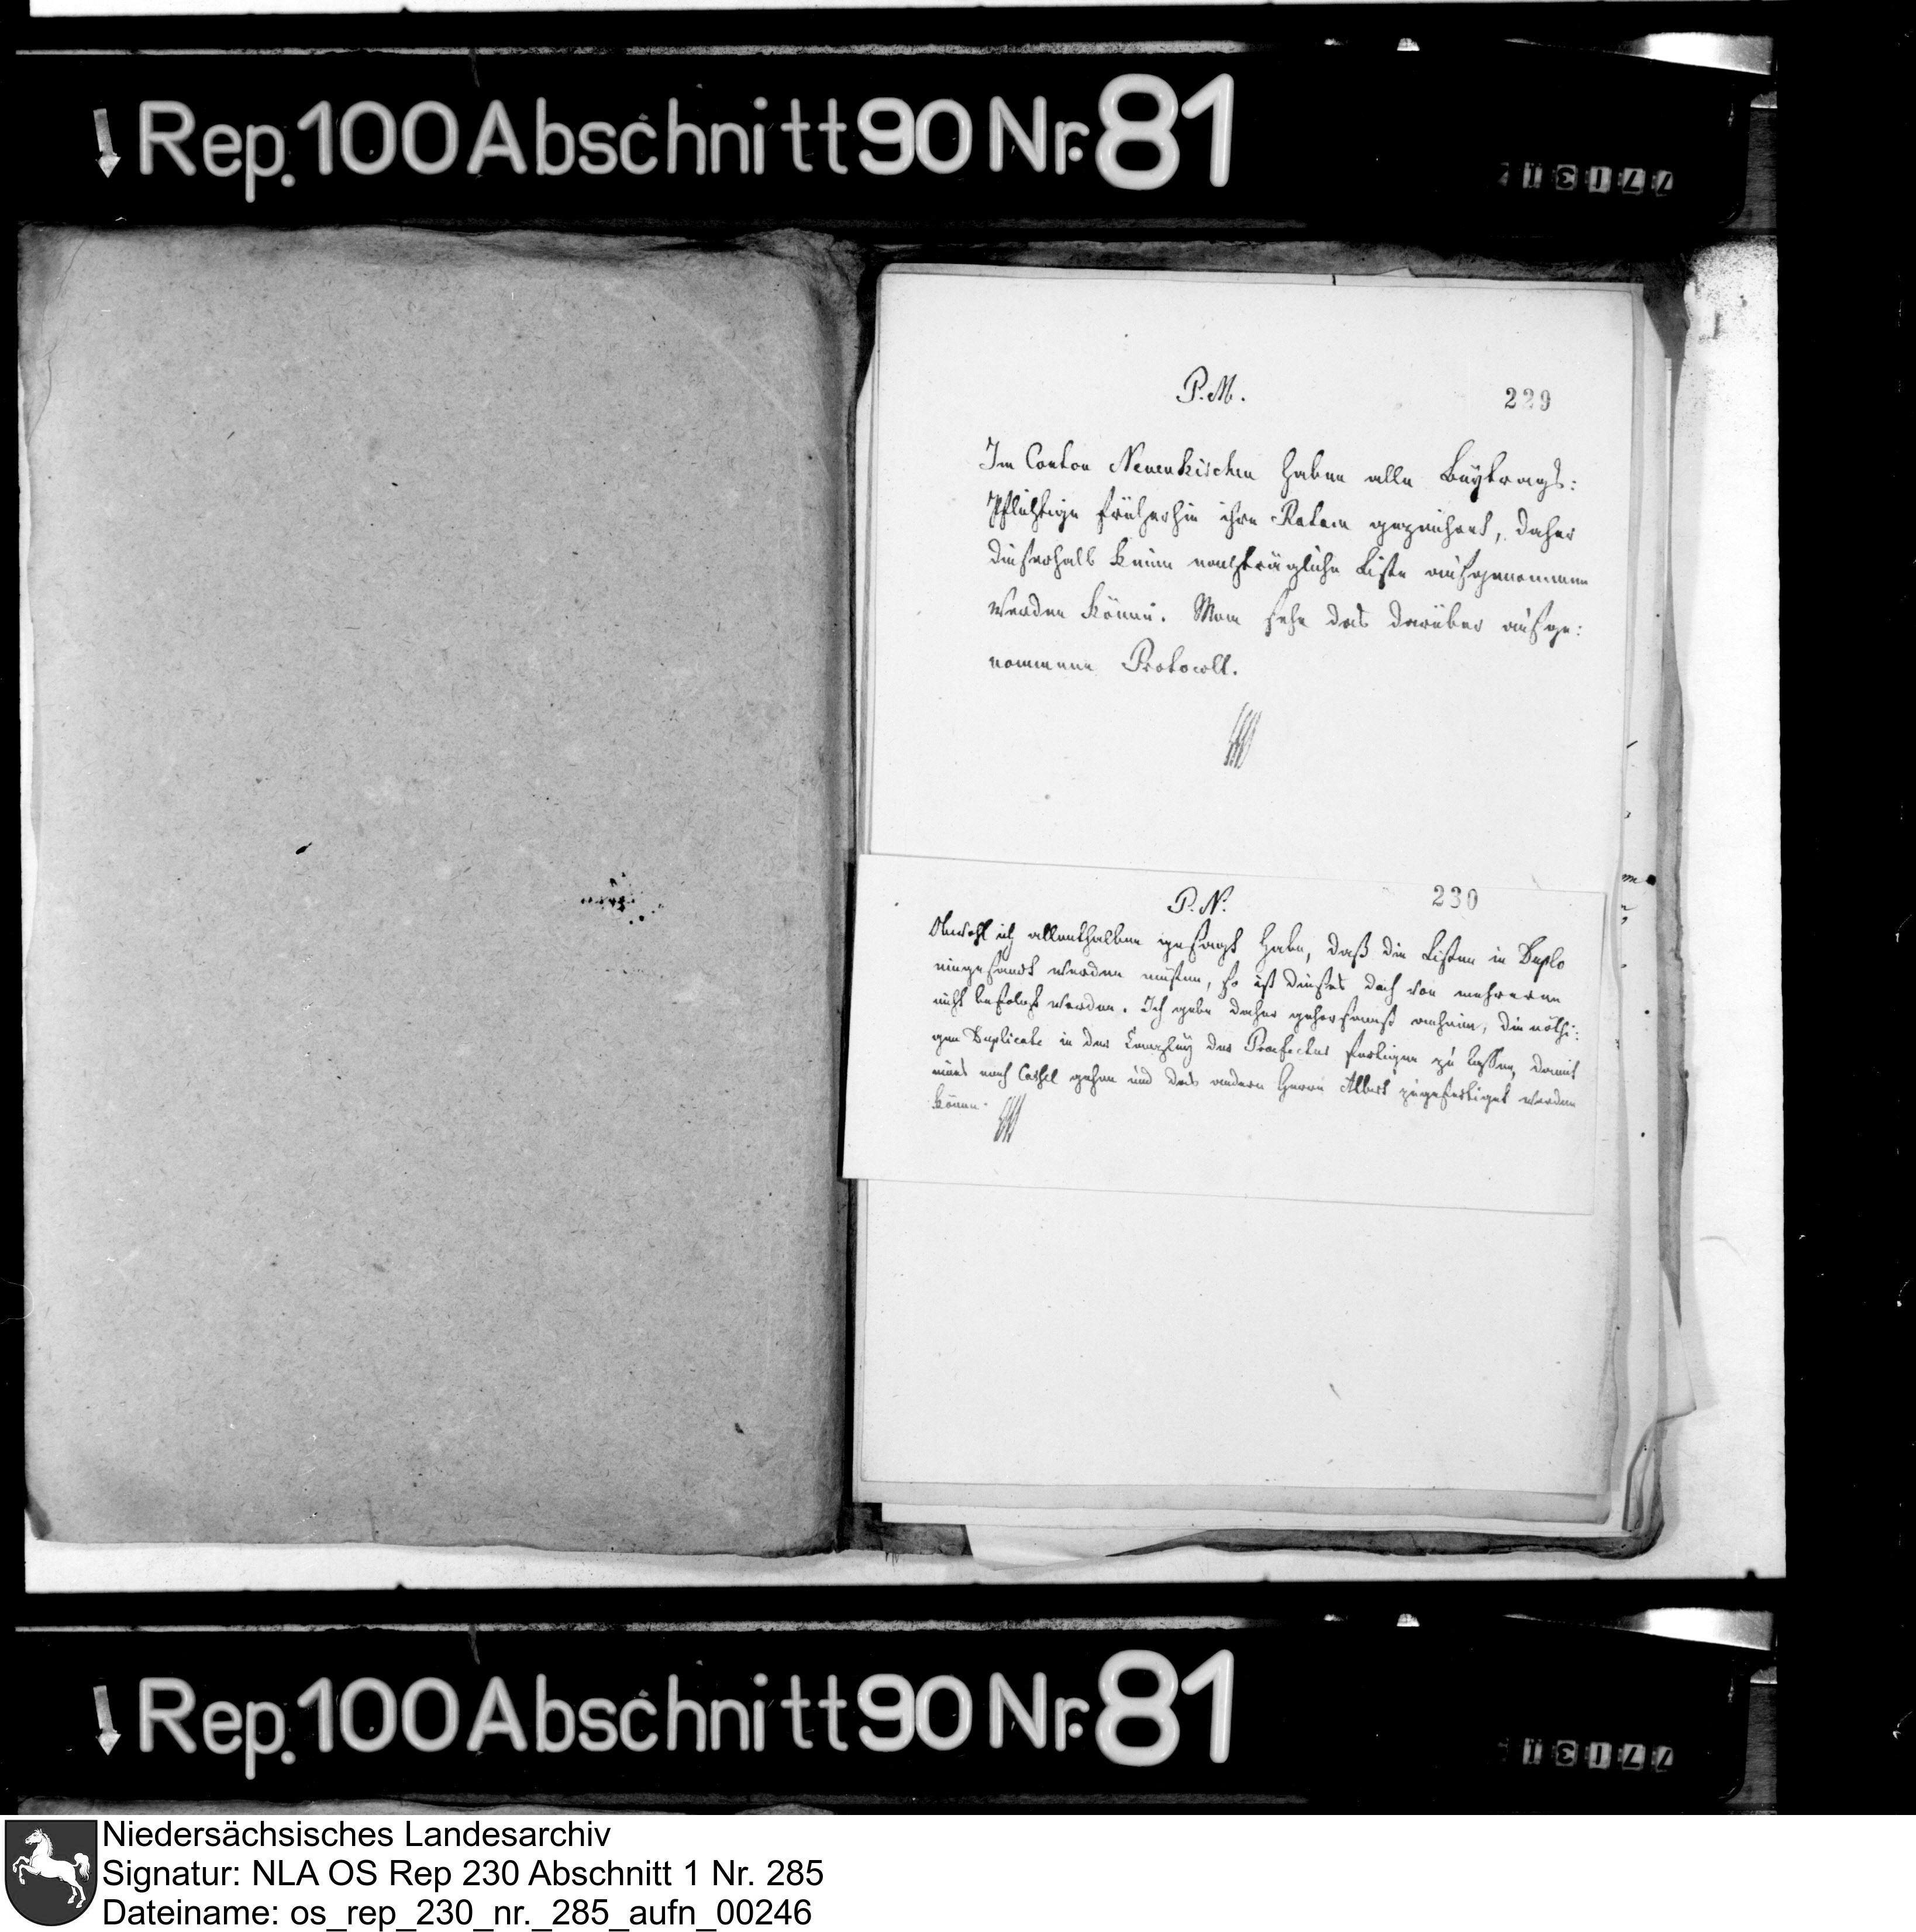 Rep. 100 Abschnitt 90 Nr. 81
P. M.
229
Im Canton Neuenkirchen haben alle Beytrags:
Pflichtige früherhin ihre Ratam gezeichnet, daher
dieserhalb keine nachträgliche Liste aufgenommen
werden könne. Man sehe das darüber aufge:
nommene Protocoll.
P. N.
230
Obwohl ich allenthalben gesagt habe, daß die Listen in Duplo
eingesandt werden müsten, so ist dieses doch von mehreren
nicht befolgt worden. Ich gebe daher gehorsamst anheim, die nöthi:
gen Duplicate in der Canzley des Praefectus fertigen zu lassen, damit
eines nach Cassel gehen und das andere Herrn Albert zugefertiget werden
könne.
Rep. 100 Abschnitt 90 Nr. 81
Niedersächsisches Landesarchiv
Signatur: NLA OS Rep 230 Abschnitt 1 Nr. 285
Dateiname: os_rep_230_nr._285_aufn_00246